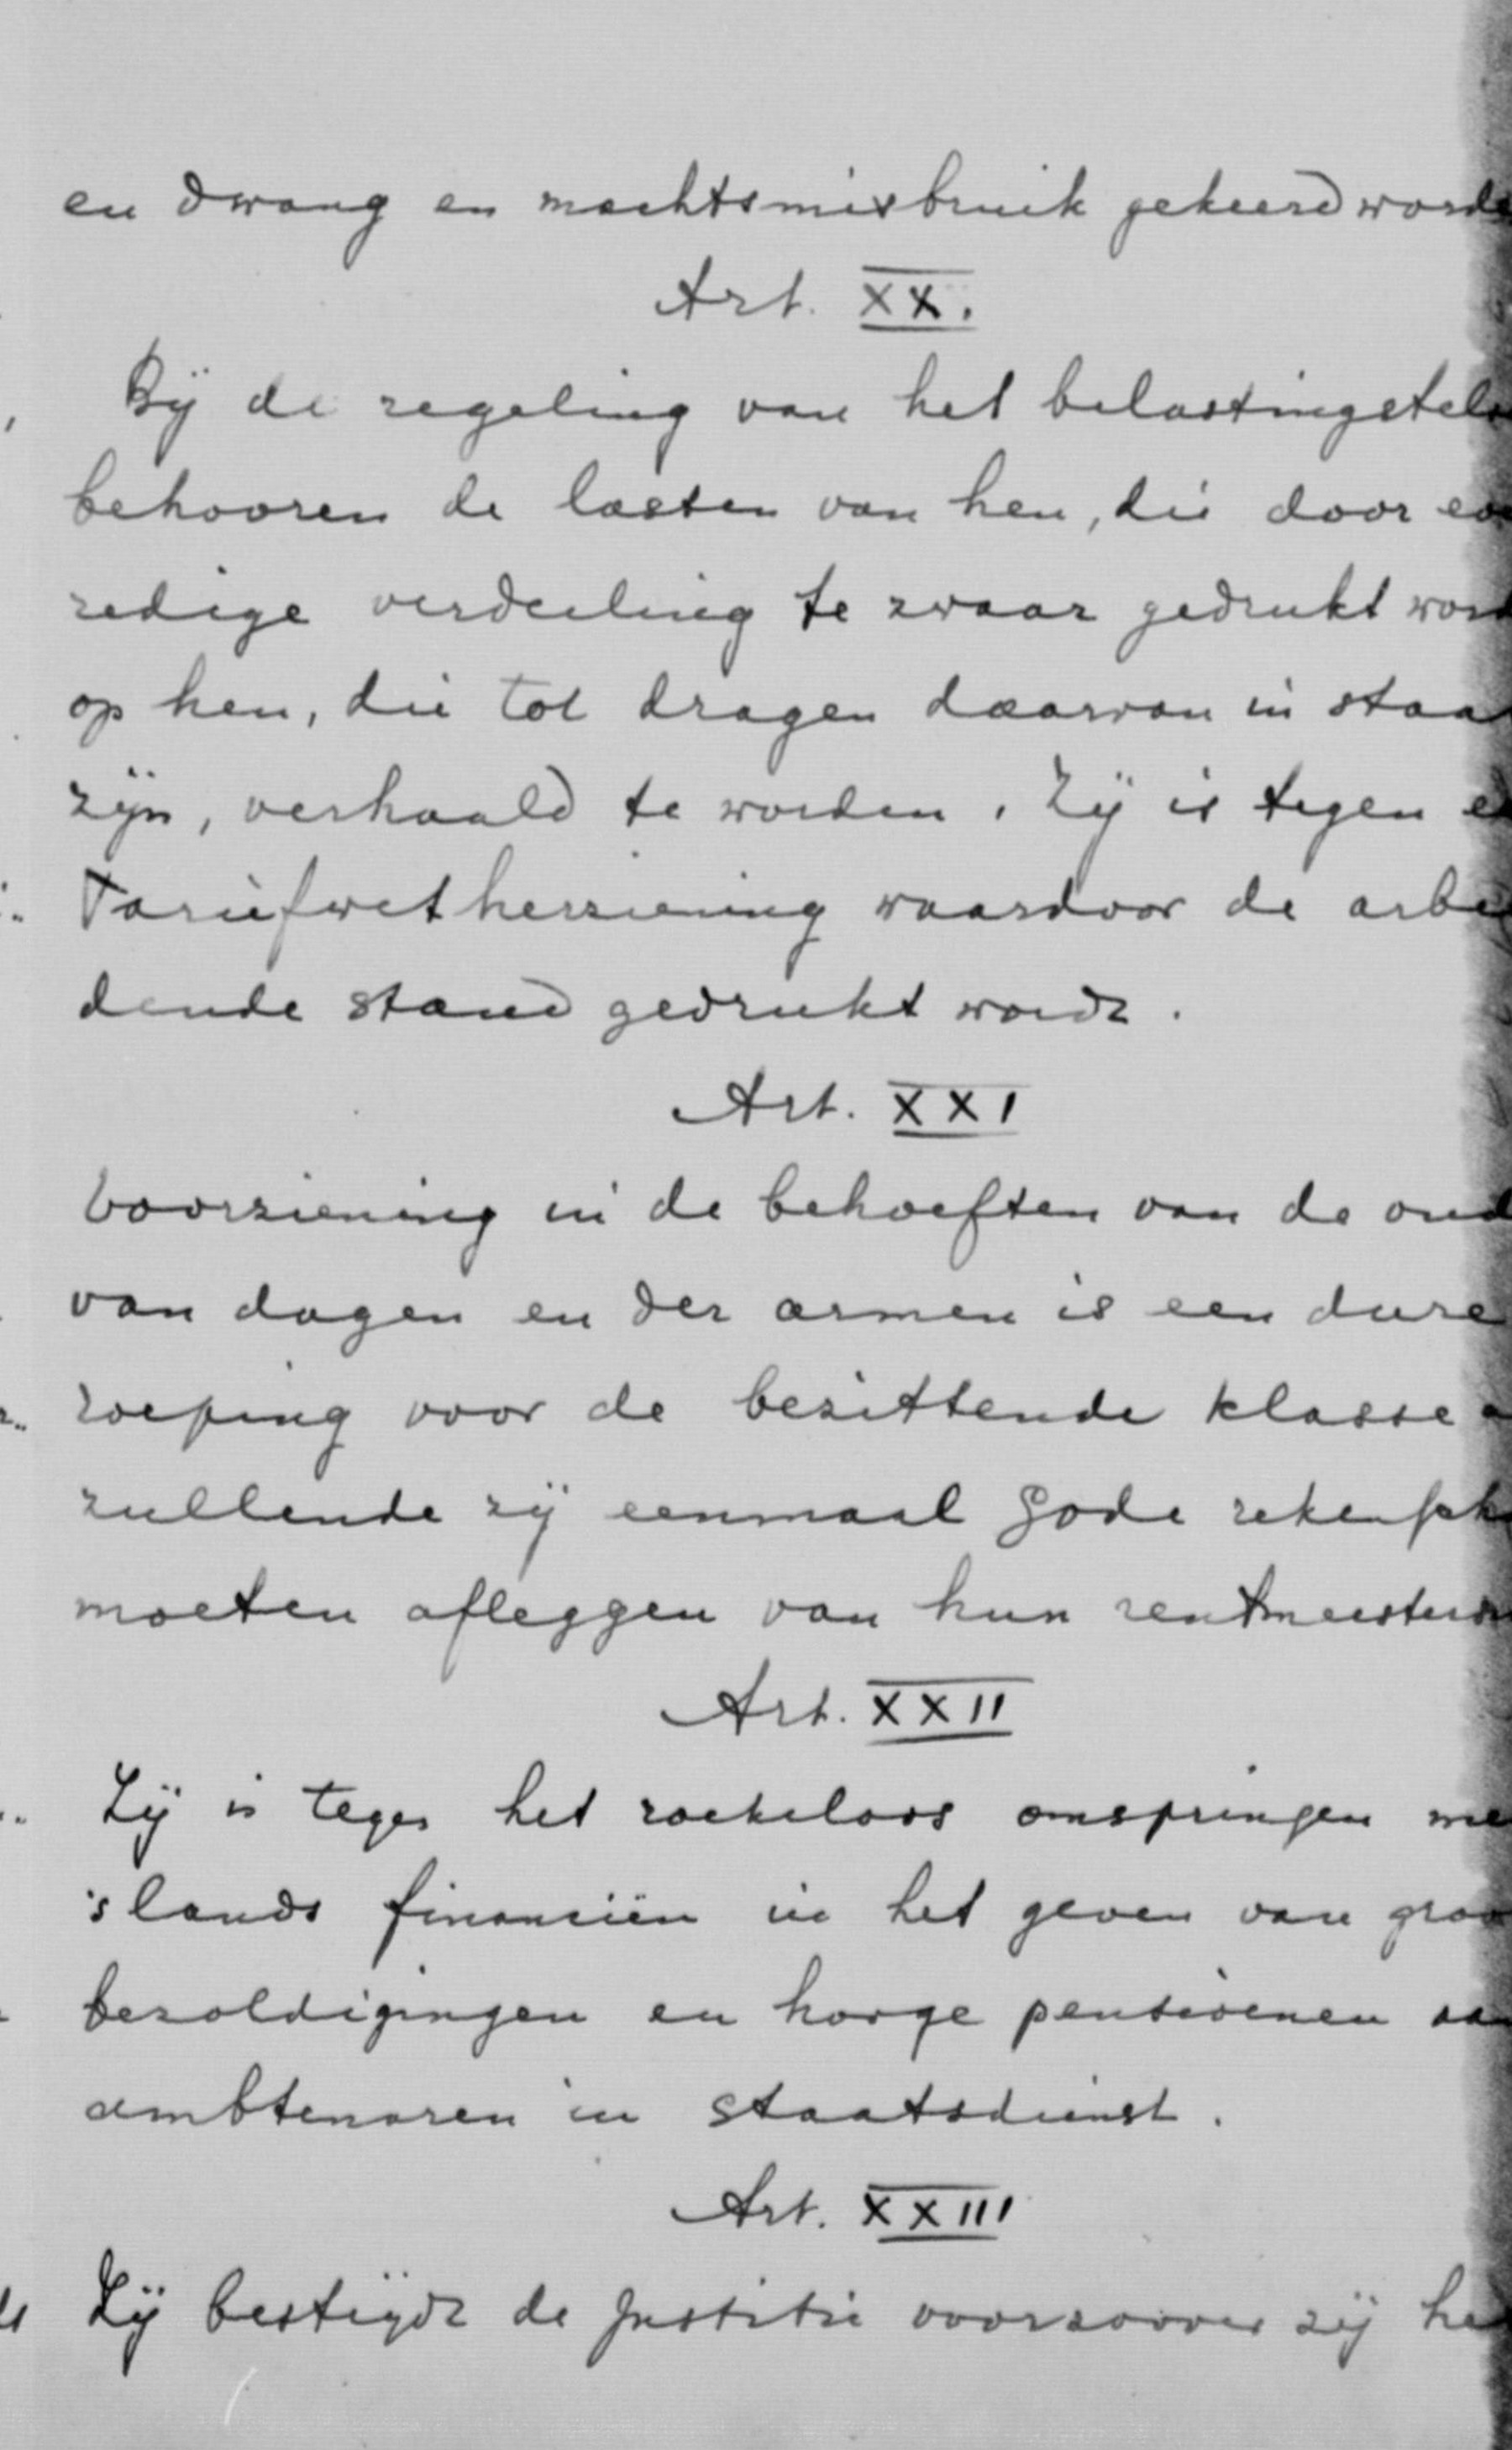 en dwang en machtsmisbruik gekeerd
Art. XX.
Bij de regeling van het
behooren de lasten van hen, die door
redige verdeeling te zwaar gedrukt
op hen, die tot dragen daarvan in
zijn, verhaald te worden. Zij is tegen
Tariefwetherziening waardoor de
dende stand gedrukt wordt.
Art. XXI
Voorziening in de behoeften van de
van dagen en der armen is een dure
roeping voor de bezittende klasse
zullende zij eenmaal Gode
moeten afleggen van hun
Art. XXII
Zij is tegen het roekeloos omspringen
's lands financiën in het geven van
bezoldigingen en hooge pensioenen
ambtenaren in staatsdienst.
Art. XXIII
Zij bestijdt de Justitie voorzoover zij